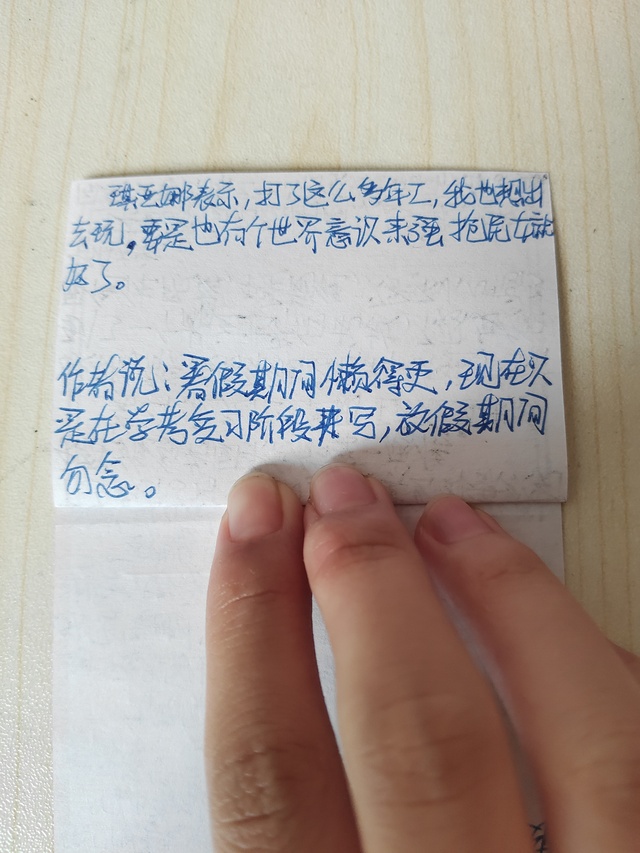 琪亚娜表示，打了这么多年工，我也想出
去玩，要是也有个世界意识来强抢民女就
好了。
作者说：暑假期间懒得更，现在只
是在学考复习阶段 写，放假期间
勿念。